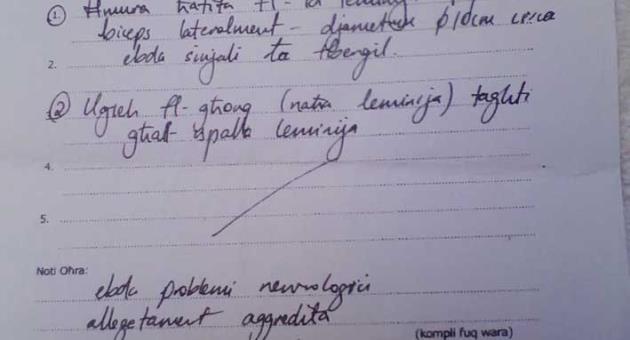 ① Hmura ħafifa fl-id
biceps lateralment - djametru
2. ebda sinjali ta tbengil.
② Ugieh fl-ghonq (naħa leminija) tagħti
għal spalla leminija
4.
5.
Noti Oħra:
ebda problemi newrologiċi
allegatament aggredita
(kompli fuq wara)